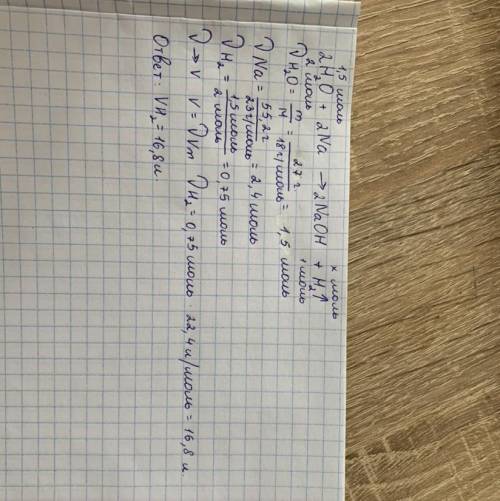 1,5 моль x моль
2H₂O + 2Na → 2NaOH + H₂↑
2 моль 1 моль
νH₂O = m/M = 27 г/18 г/моль = 1,5 моль
νNa = 55,2 г/23 г/моль = 2,4 моль
νH₂ = 1,5 моль/2 моль = 0,75 моль
ν → V V = νVm νH₂ = 0,75 моль · 22,4 л/моль = 16,8 л.
Ответ: VH₂ = 16,8 л.